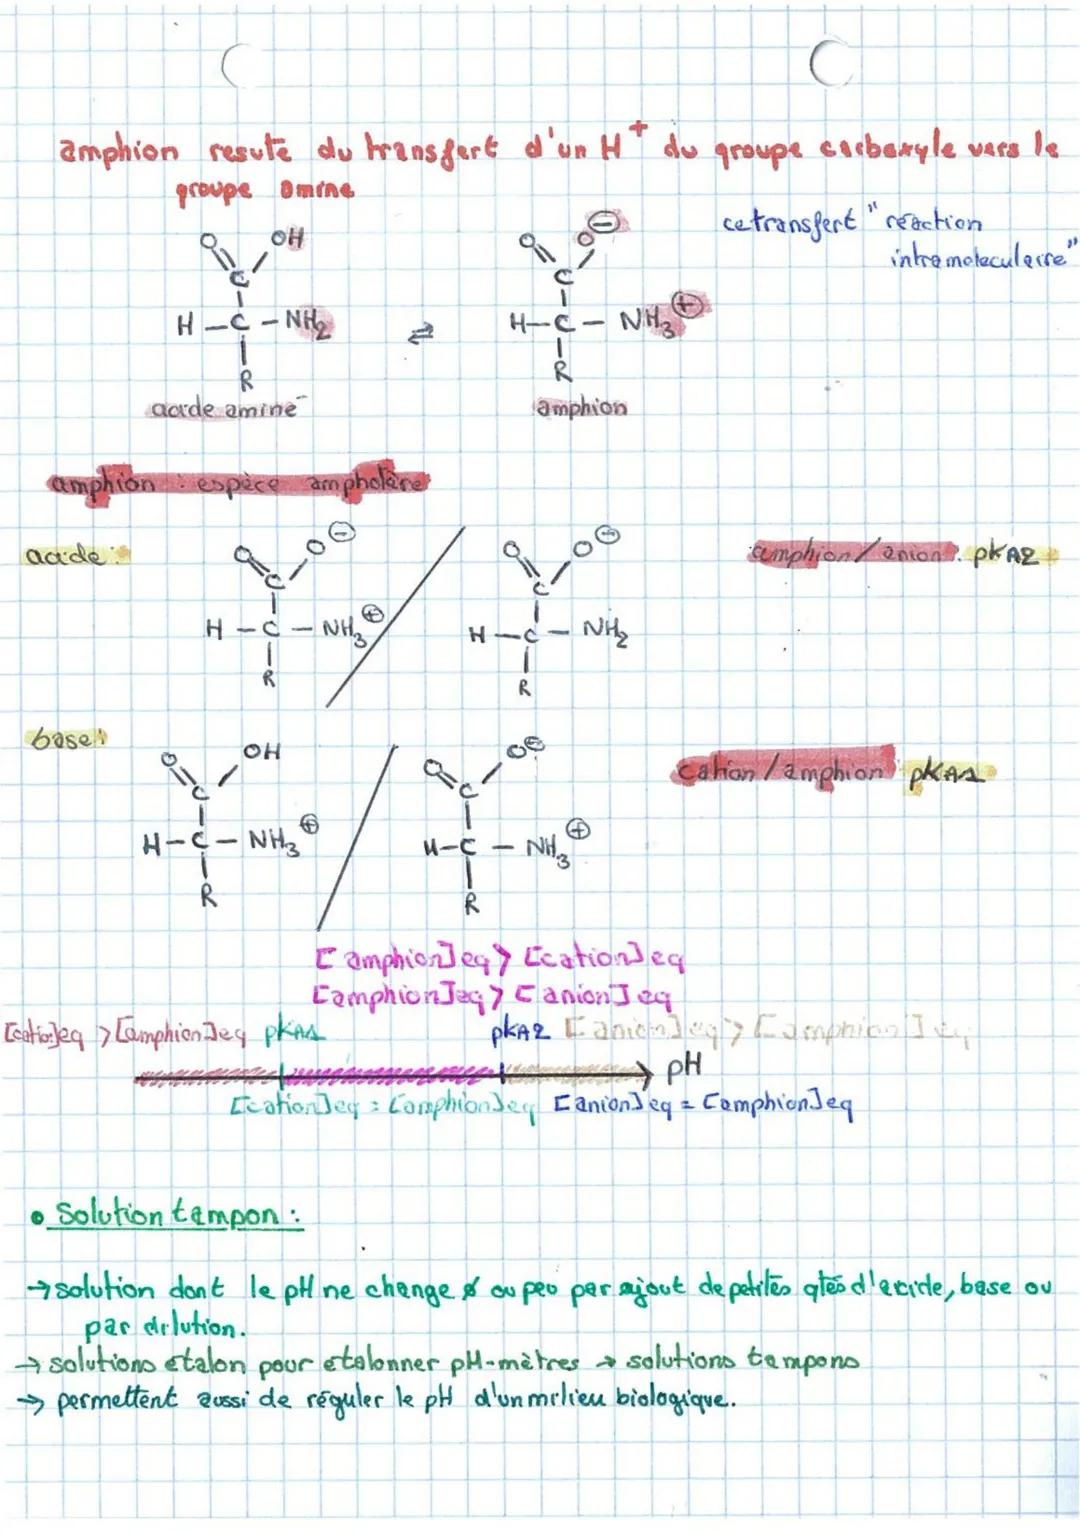 amphion resute du transfert d'un H+ du groupe carboxyle vers le
groupe amine
ce transfert "réaction
intramoleculaire"
O OH
C
H – C – NH2
R
acide aminé
⇌
O O⊖
C
H – C – NH3⊕
R
amphion
amphion : espèce ampholère
acide :
O O⊖
C
H – C – NH3⊕
R
/
O O⊖
C
H – C – NH2
R
amphion / anion : pKA2
base :
O OH
C
H – C – NH3⊕
R
/
O O⊖
C
H – C – NH3⊕
R
cation / amphion pKA1
[amphion]eq > [cation]eq
[amphion]eq > [anion]eq
[catio]eq > [amphion]eq pKA1 pKA2 [anion]eq > [amphion]eq
pH
[cation]eq = [amphion]eq [anion]eq = [amphion]eq
• Solution tampon :
→ solution dont le pH ne change ou peu par ajout de petites qtés d'acide, base ou
par dilution.
→ solutions étalon pour étalonner pH-mètres → solutions tampons
→ permettent aussi de réguler le pH d'un milieu biologique.